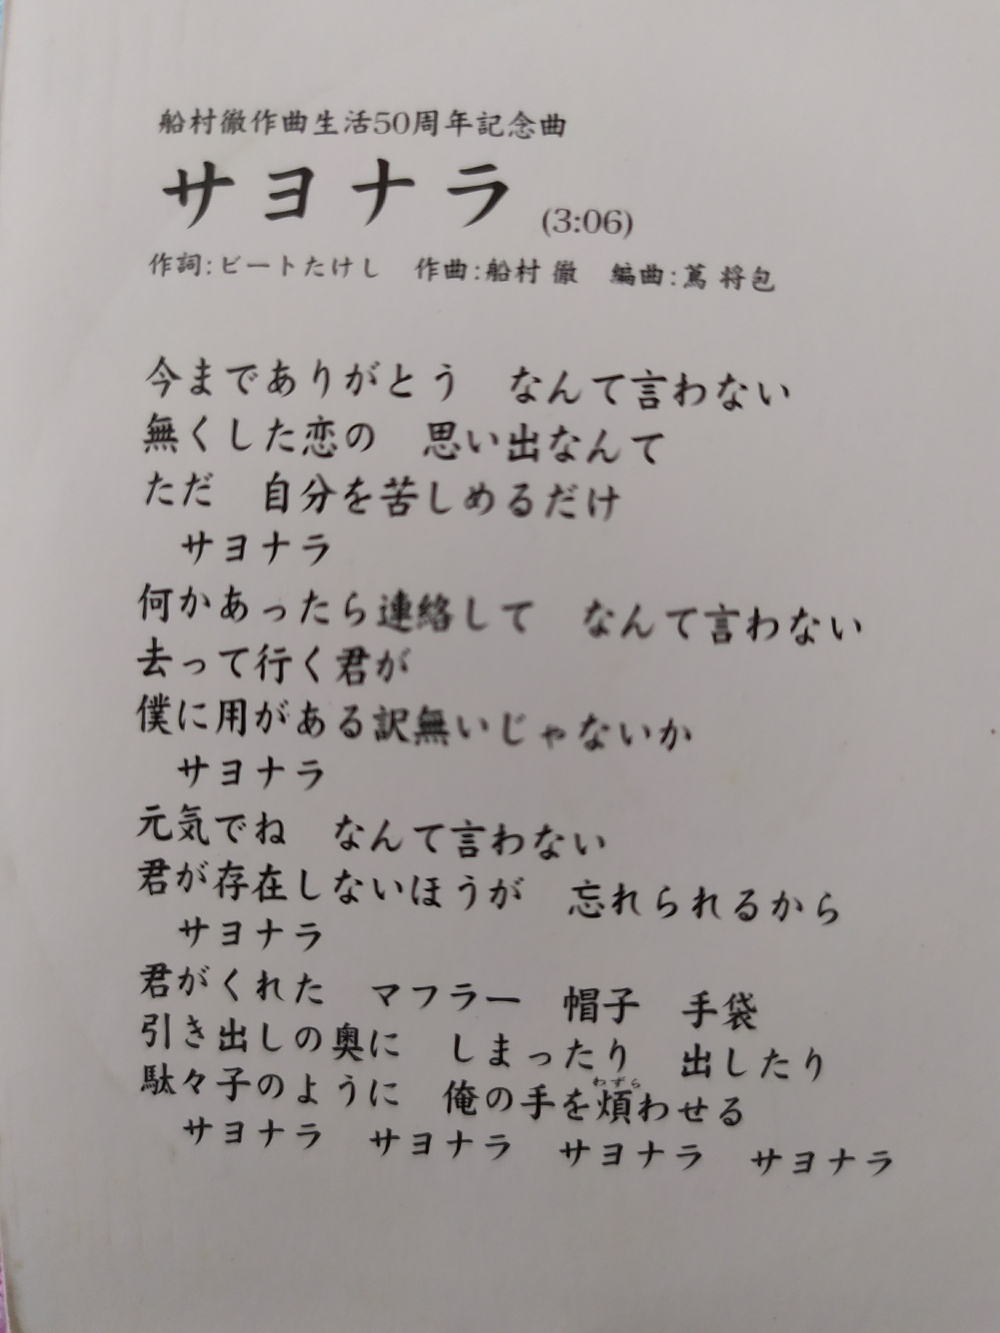 船村徹作曲生活50周年記念曲
サヨナラ (3:06)
作詞:ビートたけし　作曲:船村 徹　編曲:蔦 将包
今までありがとう　なんて言わない
無くした恋の　思い出なんて
ただ　自分を苦しめるだけ
サヨナラ
何かあったら連絡して　なんて言わない
去って行く君が
僕に用がある訳無いじゃないか
サヨナラ
元気でね　なんて言わない
君が存在しないほうが　忘れられるから
サヨナラ
君がくれた　マフラー　帽子　手袋
引き出しの奥に　しまったり　出したり
わずら
駄々子のように　俺の手を煩わせる
サヨナラ　サヨナラ　サヨナラ　サヨナラ